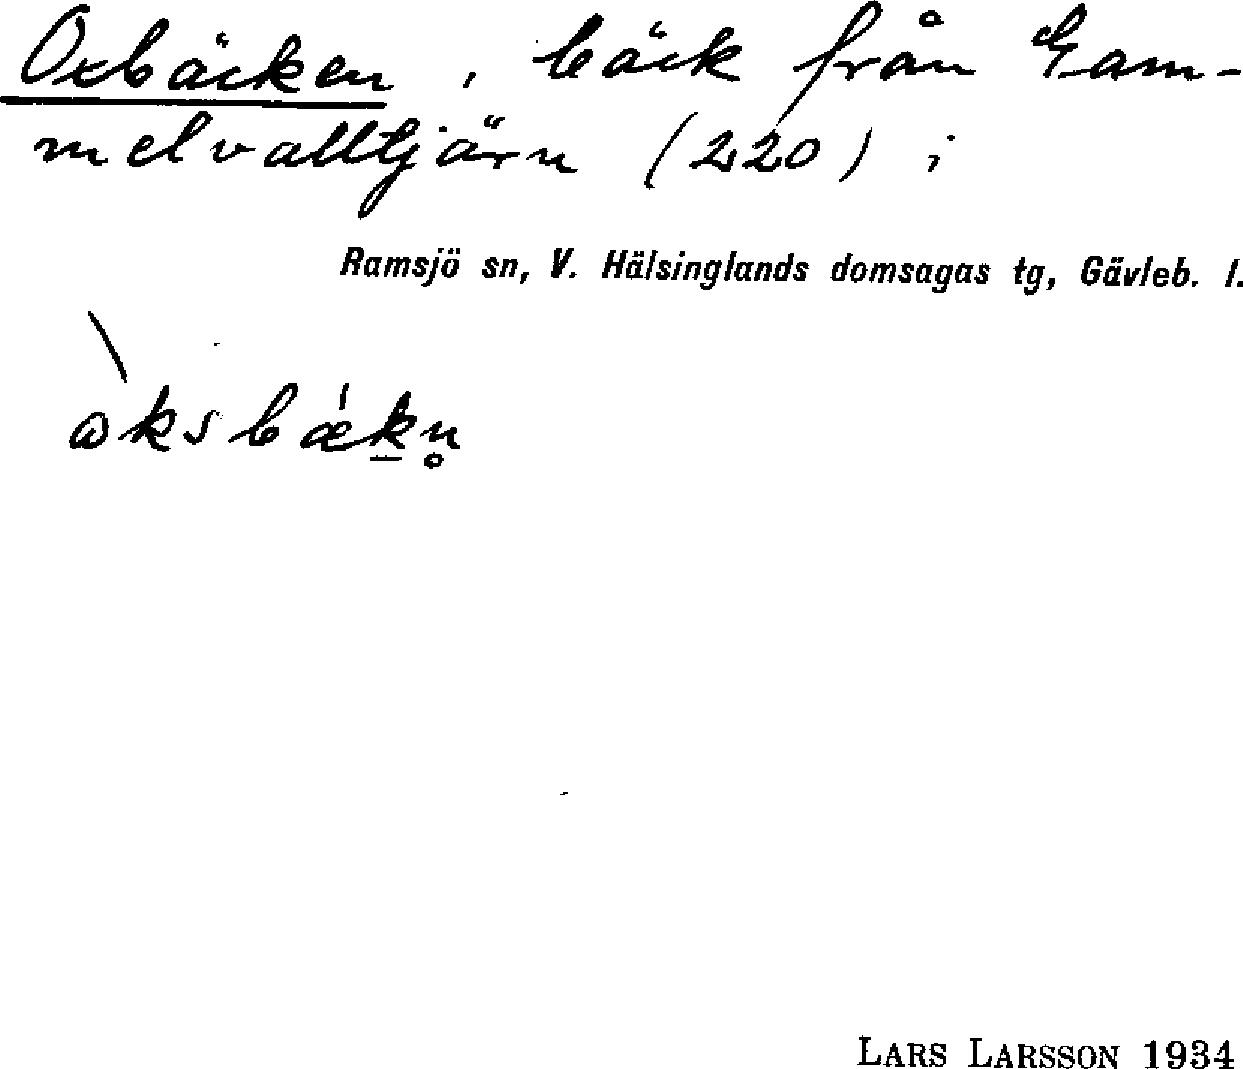 Oxbäcken, bäck från Gam-
melvalltjärn (220) i
Ramsjö sn, V. Hälsinglands domsagas tg, Gävleb. l.
LARS LARSSON 1934